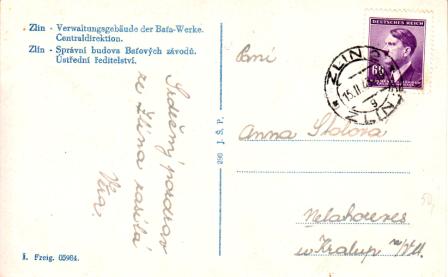 Zlín - Verwaltungsgebäude der Baťa-Werke.
Centraldirektion.
Zlín - Správní budova Baťových závodů.
Ústřední ředitelství.
Srdečný pozdrav
ze Zlína zasílá
Věra.
290 J. Š. P.
I. Freig. 05964.
DEUTSCHES REICH
60
ZLÍN
Paní
Anna
Nelahozeves
u Kralup n/Vlt.